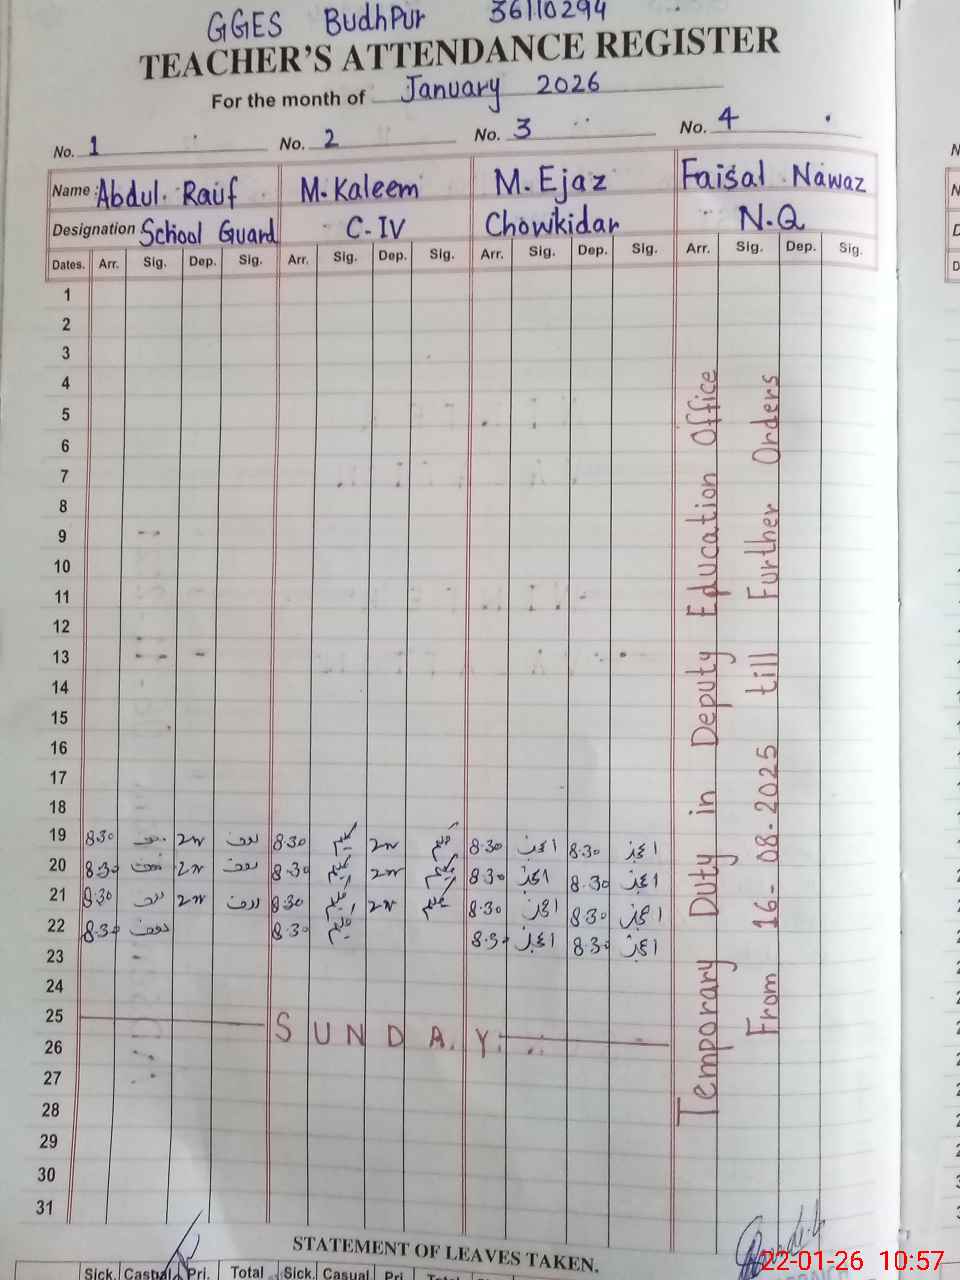 GGES BudhPur 36110294
TEACHER'S ATTENDANCE REGISTER
For the month of January 2026
No. 1 No. 2 No. 3 No. 4
Name: Abdul. Rauf M. Kaleem M. Ejaz Faisal Nawaz
Designation School Guard C-IV Chowkidar N.Q
Dates. Arr. Sig. Dep. Sig. Arr. Sig. Dep. Sig. Arr. Sig. Dep. Sig. Arr. Sig. Dep. Sig.
1
2
3
4
5
6
7
8
9
10
11
12
13
14
15
16
17
18
19 8:30 رؤف 8:30 کلیم کلیم 8:30 اعجاز 8:30 اعجاز
20 8:30 رؤف 8:30 کلیم کلیم 8:30 اعجاز 8:30 اعجاز
21 8:30 رؤف رؤف 8:30 کلیم کلیم 8:30 اعجاز 8:30 اعجاز
22 8:30 رؤف 8:30 کلیم 8:30 اعجاز 8:30 اعجاز
23
24
25 SUNDAY.
26
27
28
29
30
31
Temporary Duty in Deputy Education Office
From 16-08-2025 till Further Orders
STATEMENT OF LEAVES TAKEN.
Sick. Casual Pri. Total Sick. Casual Pri. Total
22-01-26 10:57